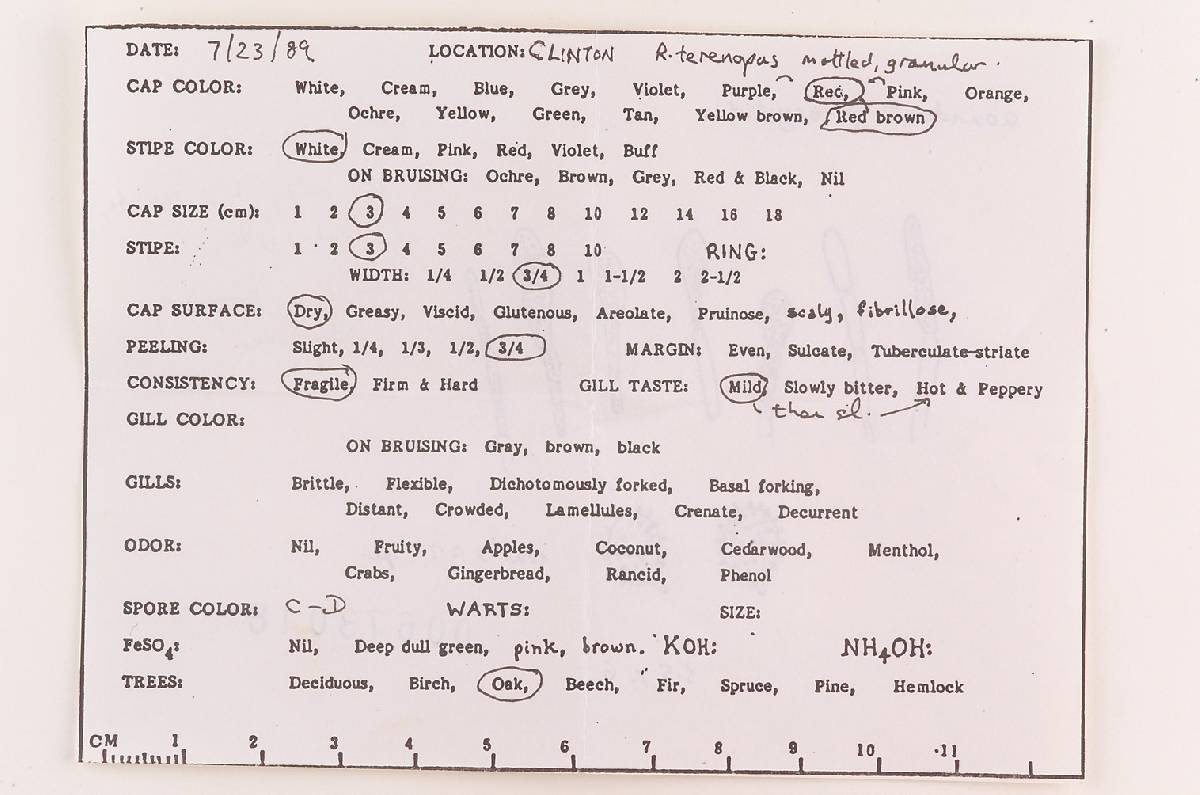 DATE: 7/23/89 LOCATION: CLINTON R. terenopus mottled, granular.
CAP COLOR: White, Cream, Blue, Grey, Violet, Purple, Red, Pink, Orange,
Ochre, Yellow, Green, Tan, Yellow brown, Red brown
STIPE COLOR: White, Cream, Pink, Red, Violet, Buff
ON BRUISING: Ochre, Brown, Grey, Red & Black, Nil
CAP SIZE (cm): 1 2 3 4 5 6 7 8 10 12 14 16 18
STIPE: 1 2 3 4 5 6 7 8 10 RING:
WIDTH: 1/4 1/2 3/4 1 1-1/2 2 2-1/2
CAP SURFACE: Dry, Greasy, Viscid, Glutenous, Areolate, Pruinose, scaly, fibrillose,
PEELING: Slight, 1/4, 1/3, 1/2, 3/4 MARGIN: Even, Sulcate, Tuberculate-striate
CONSISTENCY: Fragile, Firm & Hard GILL TASTE: Mild, Slowly bitter, Hot & Peppery
then sl.
GILL COLOR:
ON BRUISING: Gray, brown, black
GILLS: Brittle, Flexible, Dichotomously forked, Basal forking,
Distant, Crowded, Lamellules, Crenate, Decurrent
ODOR: Nil, Fruity, Apples, Coconut, Cedarwood, Menthol,
Crabs, Gingerbread, Rancid, Phenol
SPORE COLOR: C-D WARTS: SIZE:
FeSO4: Nil, Deep dull green, pink, brown. KOH: NH4OH:
TREES: Deciduous, Birch, Oak, Beech, Fir, Spruce, Pine, Hemlock
CM 1 2 3 4 5 6 7 8 9 10 11